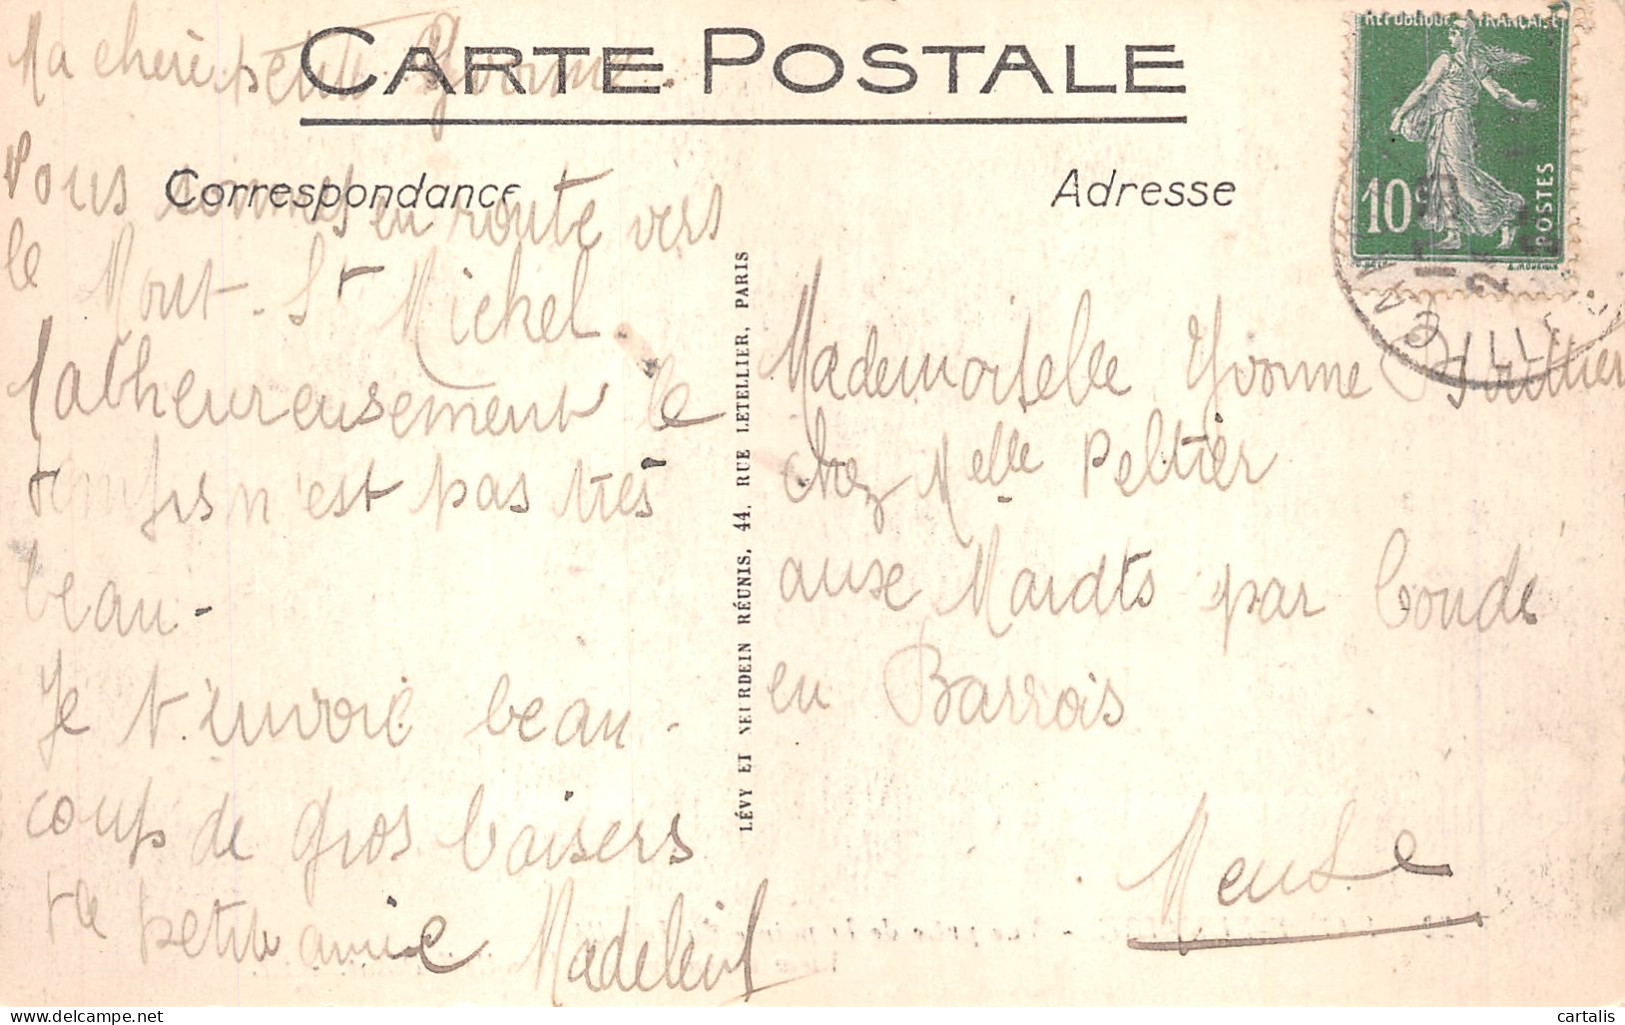 CARTE POSTALE
Correspondance
Adresse
REPUBLIQUE FRANCAISE
10c
POSTES
Ma chère petite Yvonne.
Nous sommes en route vers
le Mont-St Michel.
Malheureusement le
temps n'est pas très
beau-
Je t'envoie beau-
coup de gros baisers
petite amie Madelein
LÉVY ET NEURDEIN RÉUNIS, 44, RUE LETELLIER, PARIS
Mademoiselle Yvonne
chez Melle Peltier
aux Mardts par Condé
en Barrois
Meuse
cartalis